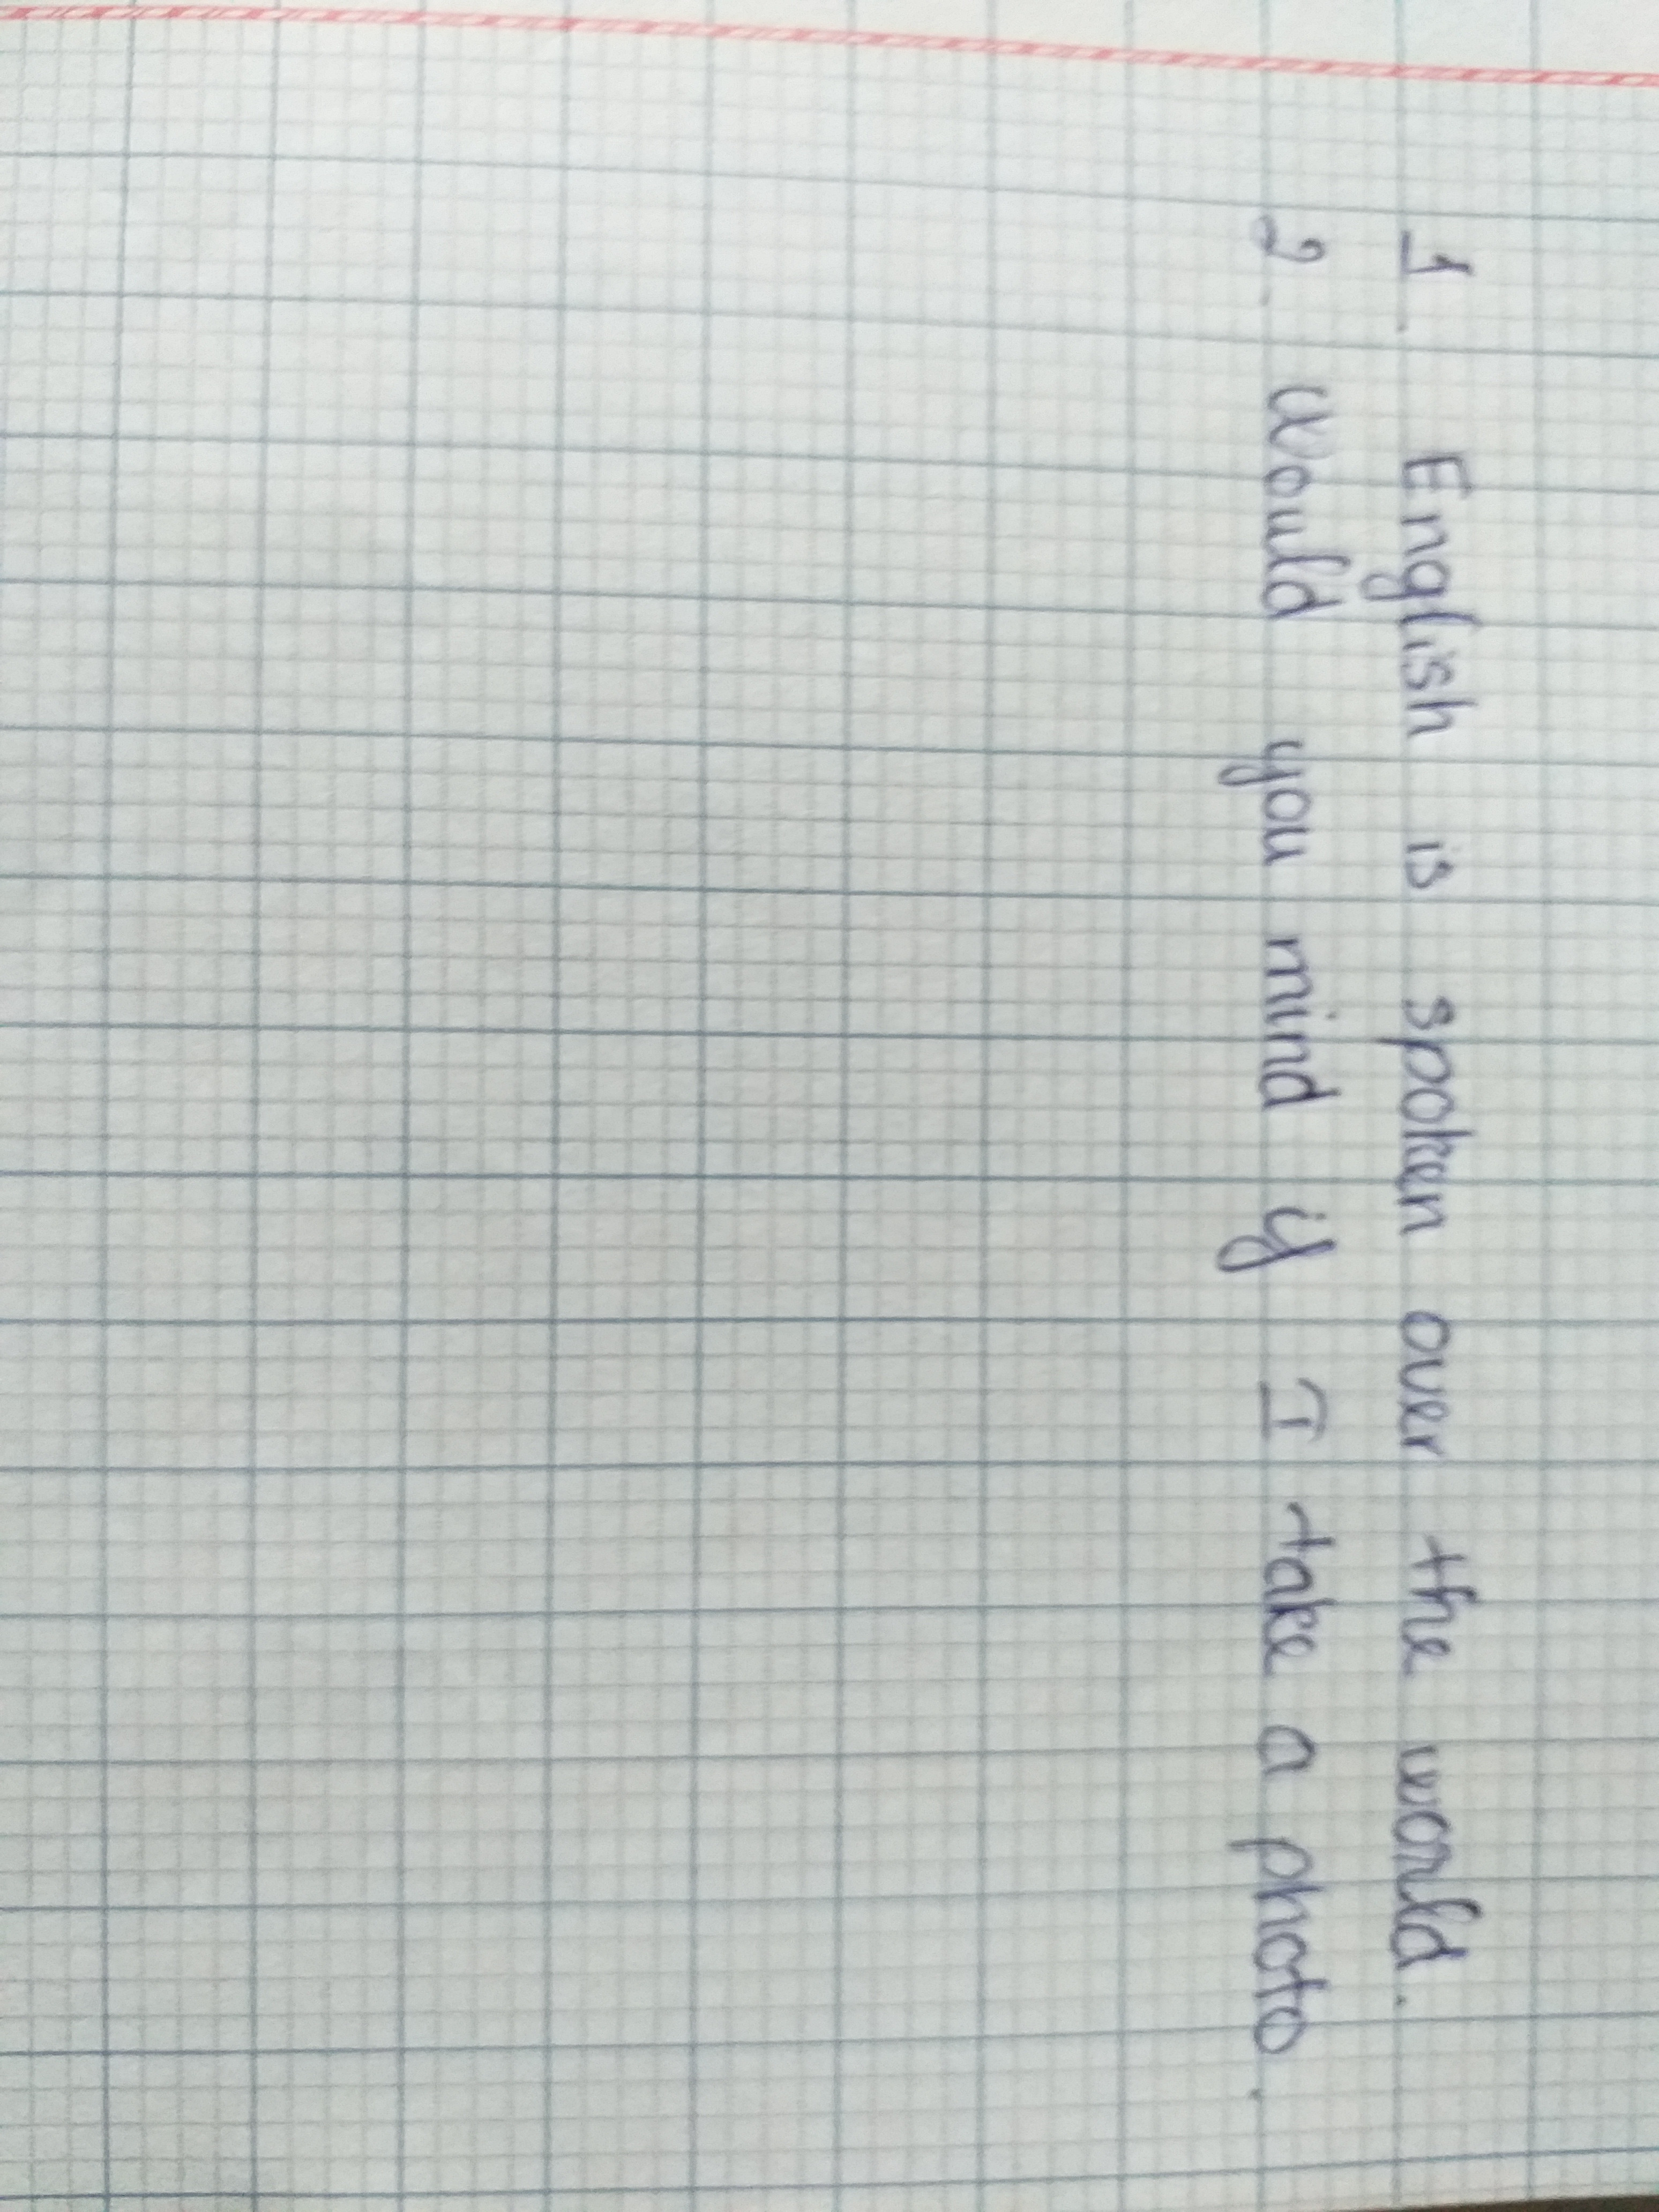 1. English is spoken over the world.
2. Would you mind if I take a photo.